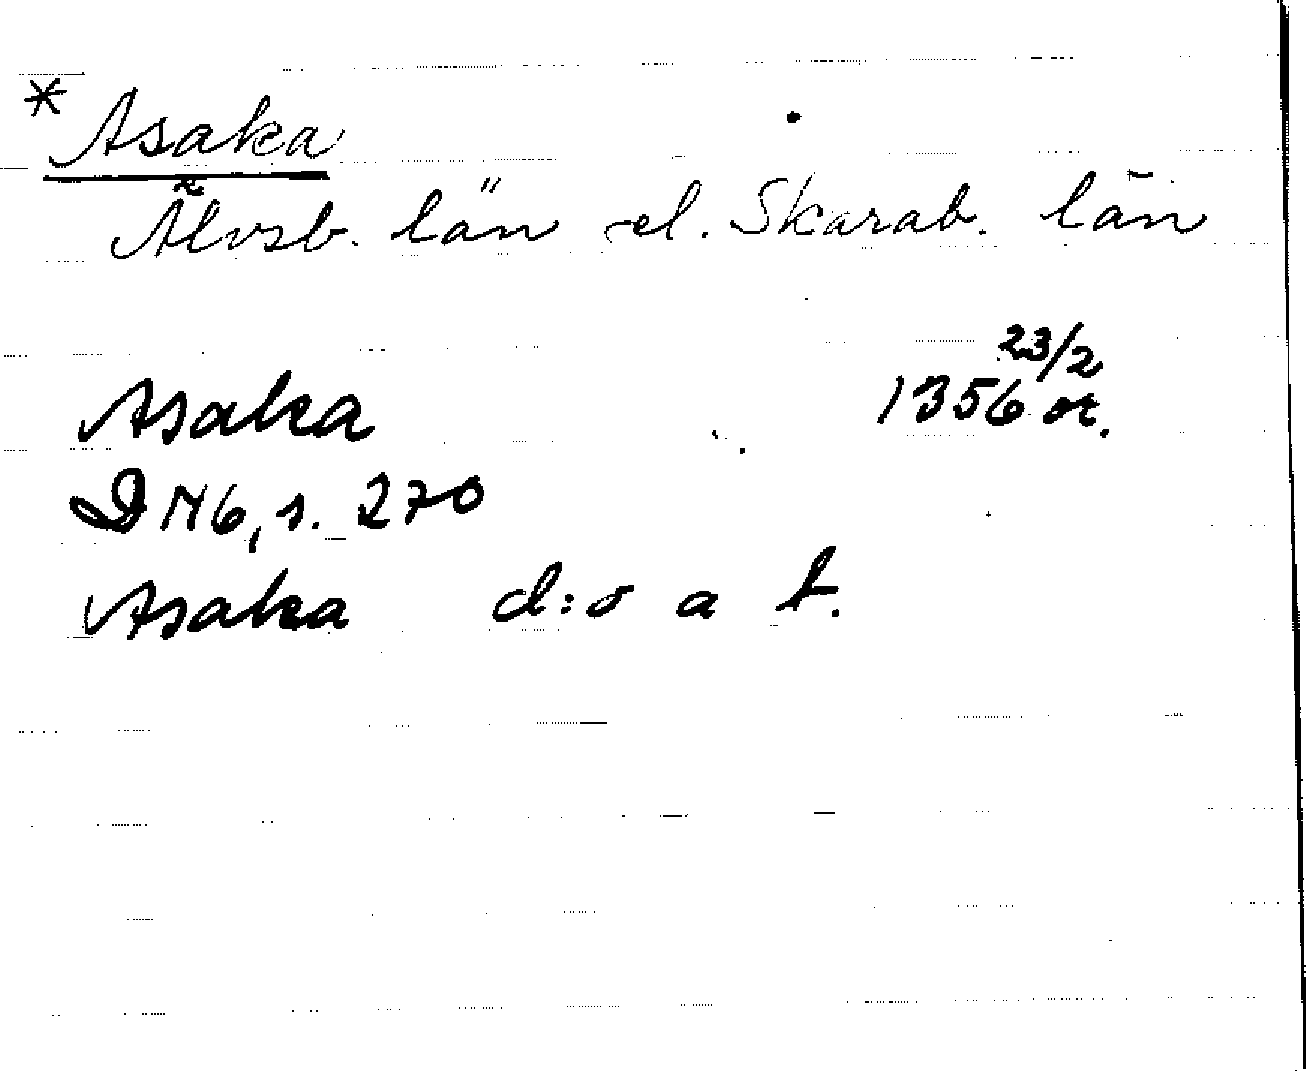 * Asaka
Älvsb. län el. Skarab. län
Asaka 1356 23/2 or.
DN6, s. 270
Asaka d:o a b.